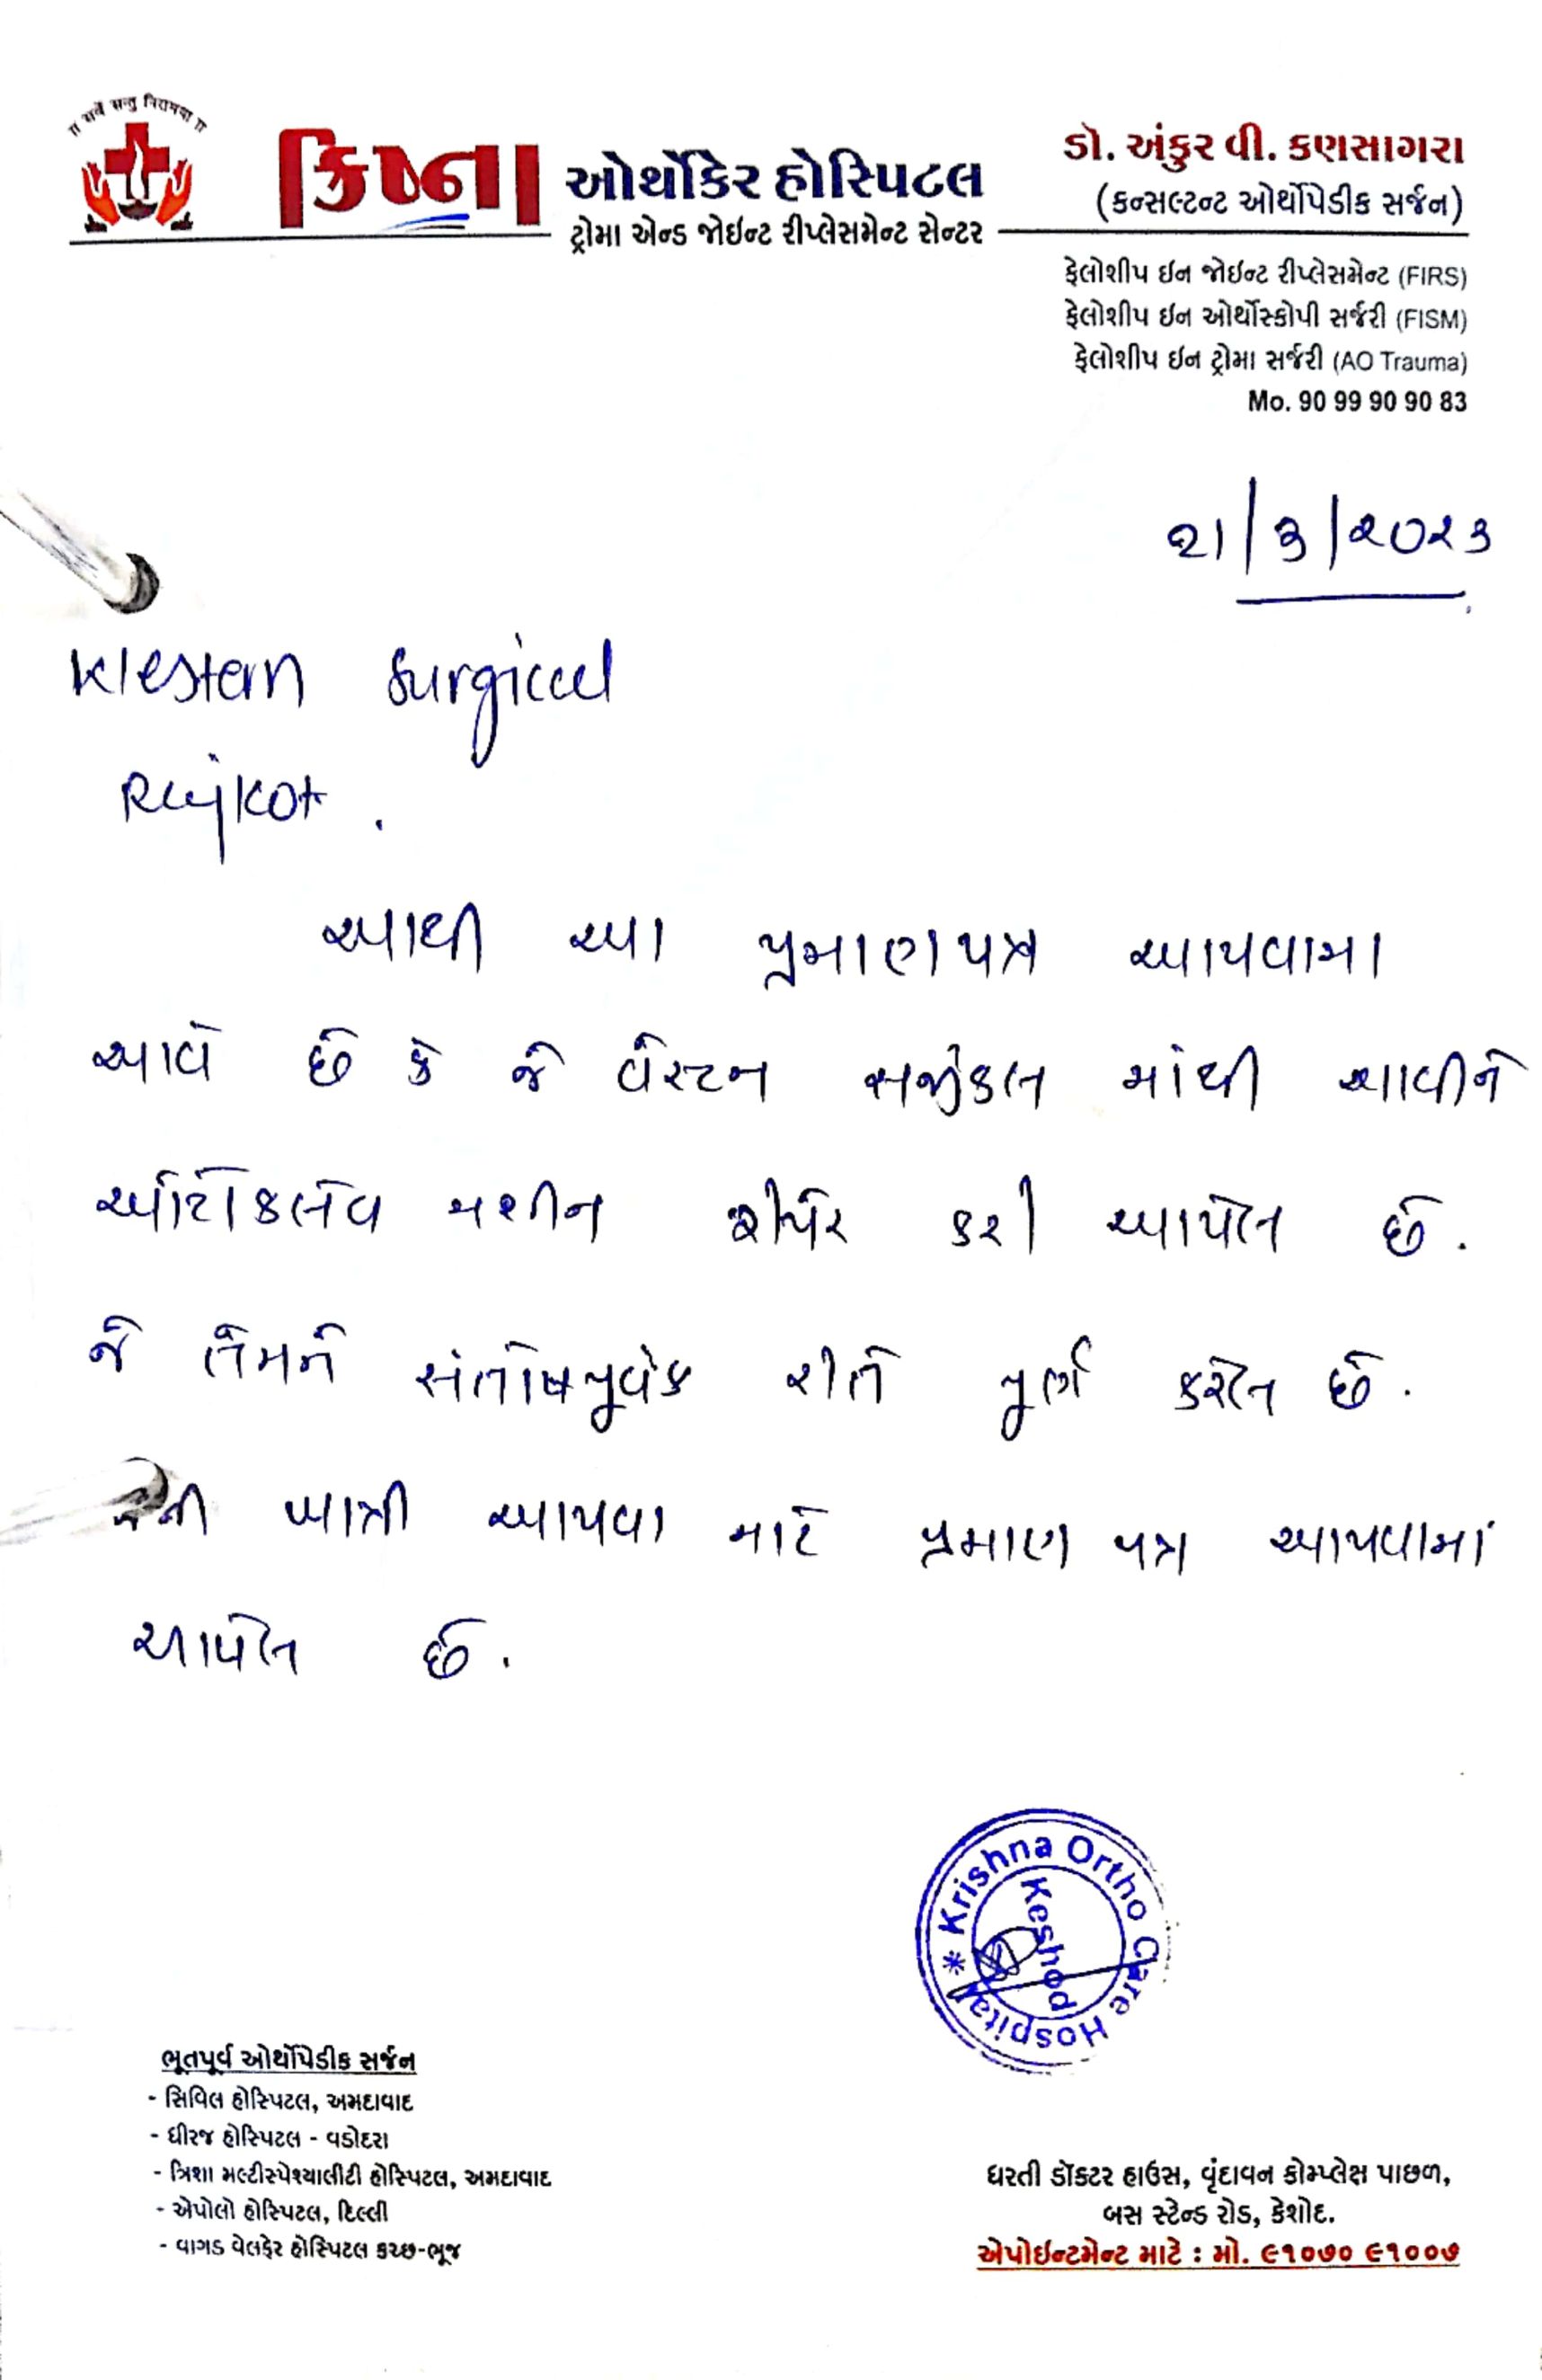 ॥ सर्वे सन्तु निरामया ॥
ક્રિષ્ના ઓર્થોકેર હોસ્પિટલ
ટ્રોમા એન્ડ જોઇન્ટ રીપ્લેસમેન્ટ સેન્ટર
ડૉ. અંકુર વી. કણસાગરા
(કન્સલ્ટન્ટ ઓર્થોપેડીક સર્જન)
ફેલોશીપ ઇન જોઇન્ટ રીપ્લેસમેન્ટ (FIRS)
ફેલોશીપ ઇન ઓર્થોસ્કોપી સર્જરી (FISM)
ફેલોશીપ ઇન ટ્રોમા સર્જરી (AO Trauma)
Mo. 90 99 90 90 83
૨૧/૩/૨૦૨૩
Western Surgical
Rajkot.
આથી આ પ્રમાણપત્ર આપવામા
આવે છે કે જે વેસ્ટન સર્જીકલ માંથી આવીને
ઓટોકલેવ મશીન રીપેર કરી આપેલ છે.
જે તેમને સંતોષપુર્વક રીતે પુર્ણ કરેલ છે.
ખાત્રી આપવા માટે પ્રમાણ પત્ર આપવામાં
આપેલ છે.
Krishna Ortho Care Hospital *
Keshod
ભૂતપૂર્વ ઓર્થોપેડીક સર્જન
- સિવિલ હોસ્પિટલ, અમદાવાદ
- ધીરજ હોસ્પિટલ - વડોદરા
- ત્રિશા મલ્ટીસ્પેશ્યાલીટી હોસ્પિટલ, અમદાવાદ
- એપોલો હોસ્પિટલ, દિલ્લી
- વાગડ વેલફેર હોસ્પિટલ કચ્છ-ભૂજ
ધરતી ડૉક્ટર હાઉસ, વૃંદાવન કોમ્પ્લેક્ષ પાછળ,
બસ સ્ટેન્ડ રોડ, કેશોદ.
એપોઇન્ટમેન્ટ માટે : મો. ૯૧૦૭૦ ૯૧૦૦૭